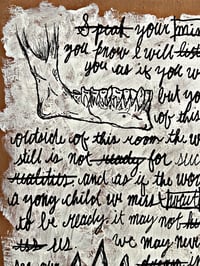 Speak your mis
you know I will lost
you as if you w
but you
of this
outside of this room the w
still is not ready for suc
realities and as if the wo
a yong child we miss
to be ready. it may not his
us we may nev